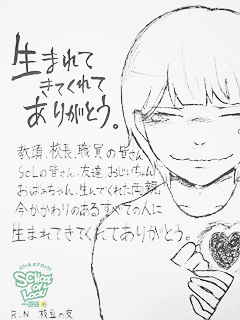 生まれて
きてくれて
ありがとう。
教頭、校長、職員の皆さん
SCLの皆さん、友達、おじいちゃん
おばあちゃん、生んでくれた両親、
今かかわりのあるすべての人に
生まれてきてくれてありがとう。
SCHOOL
OF
LOCK!
R.N 枝豆の皮